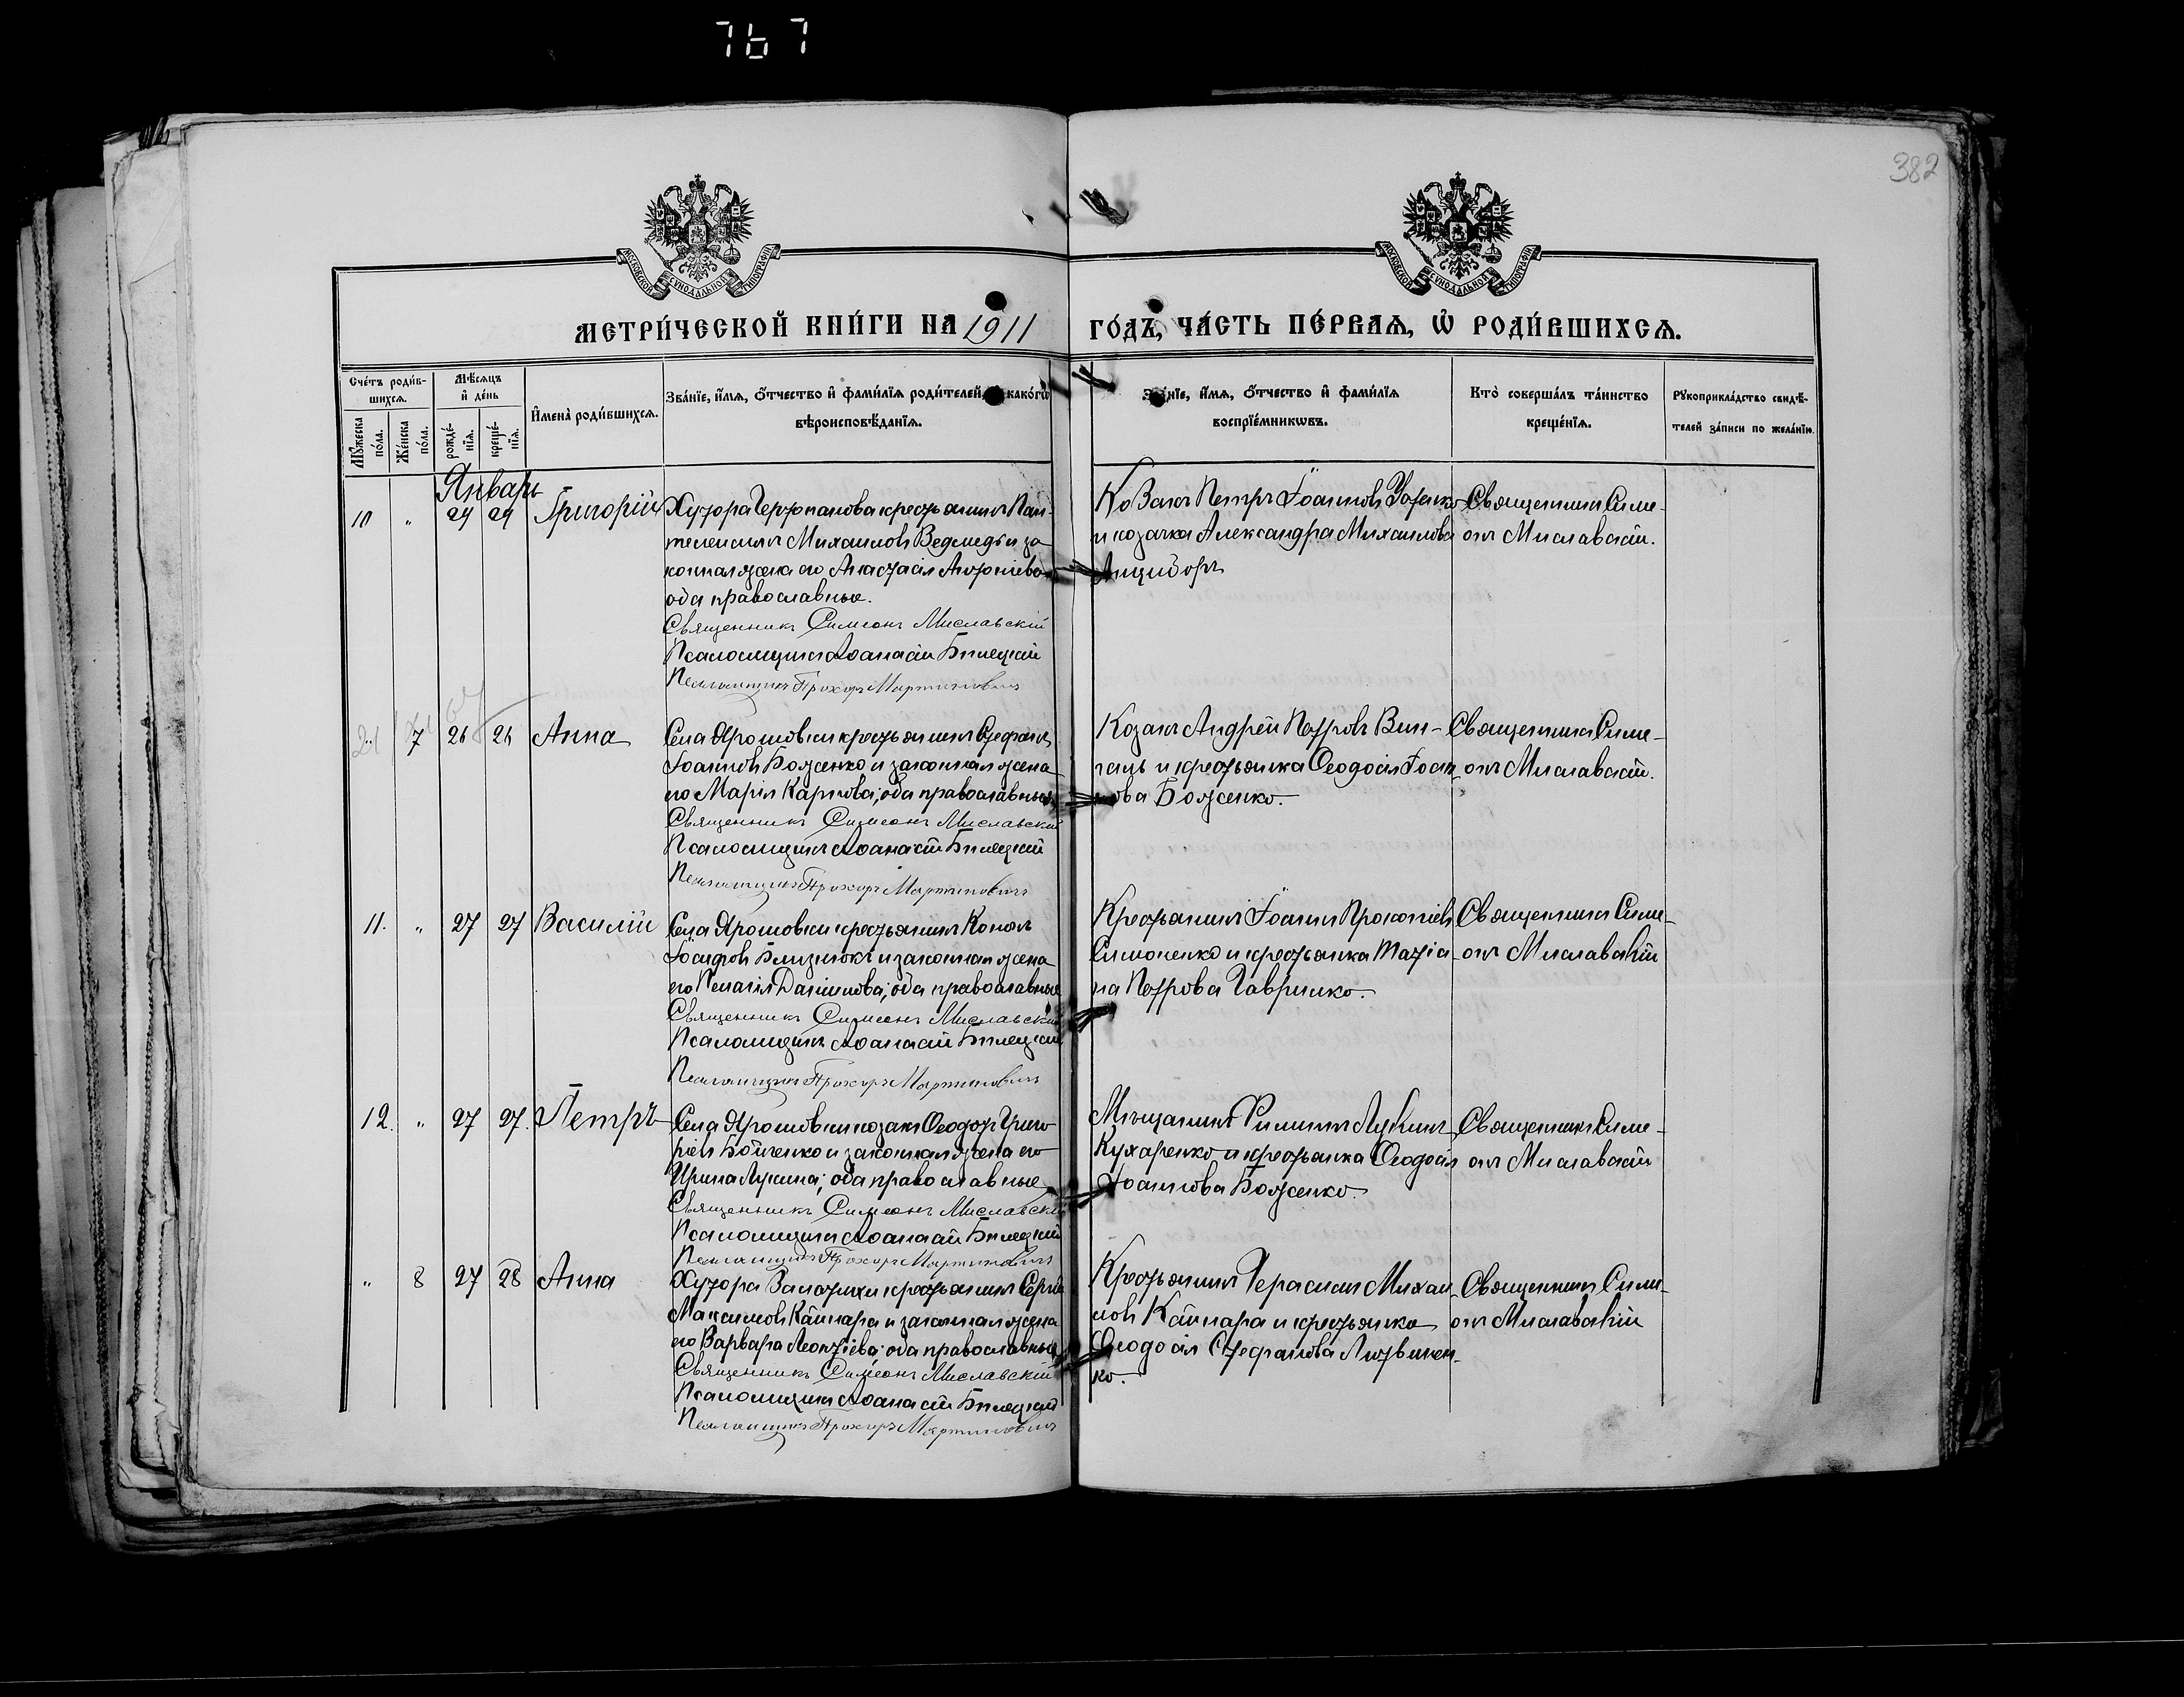 767
382
МОСКОВСКОЙ СУНОДАЛЬНОЙ ТИПОГРАФІИ
МОСКОВСКОЙ СУНОДАЛЬНОЙ ТИПОГРАФІИ
МЕТРИ́ЧЕСКОЙ КНИ́ГИ НА 1911 ГО́ДЪ, ЧА́СТЬ ПЕ́РВАЯ, Ѡ҆ РОДИ́ВШИХСЯ.
Сче́тъ роди́в-
шихся.
Мѣ́сяцъ
и҆ де́нь
Мꙋ́жеска по́ла.
Же́нска по́ла.
рожде́-
нїя.
креще́-
нїя.
И҆мена̀ роди́вшихся.
Зва́нїе, и҆́мя, о҆́тчество и҆ фами́лїя роди́телей, како́гѡ
вѣроисповѣ́данїя.
Зва́нїе, и҆́мя, о҆́тчество и҆ фами́лїя
воспрїе́мникѡвъ.
Кто̀ соверша́лъ та́инство
креще́нїя.
Рꙋкоприкла́дство свидѣ́-
телей за́писи по жела́нїю.
Январь
10 " 24 24 Григорій
Хутора крестьянинъ Пан-
телеимонъ Михаиловъ Ведмедь и за
конная жена его Анастасія
оба православные.
Священникъ Симеонъ Миславскій
Псаломщикъ Аѳанасій Билецкій
Псаломщикъ Прохоръ Мартиновичъ
Козакъ Петръ Іоанновъ
и козачка Александра Михаилова
Анциборъ
Священникъ Симе-
онъ Миславскій.
" 7 26 26 Анна
Села Ярошовки крестьянинъ Стефанъ
Іоанновъ Боженко и законная жена
его Марія Карпова; оба православные
Священникъ Симеонъ Миславскій
Псаломщикъ Аѳанасій Билецкій
Псаломщикъ Прохоръ Мартиновичъ
Козакъ Андрей Петровъ Вин-
ць и крестьянка Ѳеодосія Іоан-
нова Боженко.
Священникъ Симе-
онъ Миславскій.
11. " 27 27 Василій
Села Ярошовки крестьянинъ Кононъ
Іосифовъ Близнюкъ и законная жена
его Пелагія Даніилова; оба православные
Священникъ Симеонъ Миславскій
Псаломщикъ Аѳанасій Билецкій
Псаломщикъ Прохоръ Мартиновичъ
Крестьянинъ Іоаннъ Прокопіевъ
Симоненко и крестьянка Татіа-
на Петрова Гаврилко.
Священникъ Симе-
онъ Миславскій
12. " 27 27. Петръ
Села Ярошовки козакъ Ѳеодоръ Григо-
ріевъ Бойченко и законная жена его
Ирина Лукина; оба православные
Священникъ Симеонъ Миславскій
Псаломщикъ Аѳанасій Билецкій
Псаломщикъ Прохоръ Мартиновичъ
Мѣщанинъ Филиппъ Лукинъ
Кухаренко и крестьянка Ѳеодосія
Іоаннова Боженко.
Священникъ Симе-
онъ Миславскій
" 8 27 28 Анна
Хутора крестьянинъ Сергій
Максимовъ Кайнара и законная жена
его Варвара Леонтіева; оба православные
Священникъ Симеонъ Миславскій
Псаломщикъ Аѳанасій Билецкій
Псаломщикъ Прохоръ Мартиновичъ
Крестьянинъ Герасимъ Михаи-
ловъ Кайнара и крестьянка
Ѳеодосія Стефанова Литвинен-
ко.
Священникъ Симе-
онъ Миславскій